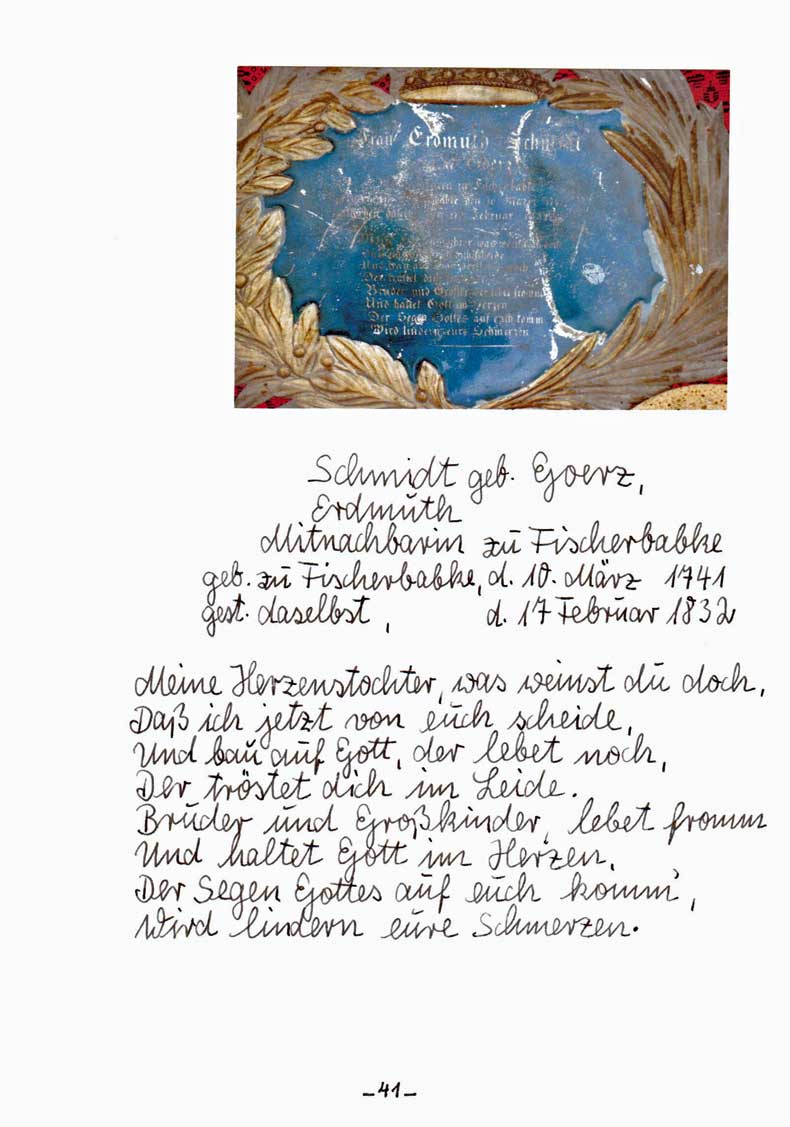 Frau Erdmuth Schmidt
Bruder und
Und haltet Gott im Herzen
Der Segen Gottes auf euch komm
Wird lindern eure Schmerzen
Schmidt geb. Goerz,
Erdmuth
Mitnachbarin zu Fischerbabke
geb. zu Fischerbabke, d. 10. März 1741
gest. daselbst, d. 17 Februar 1832
Meine Herzenstochter, was weinst du doch,
Daß ich jetzt von euch scheide,
Und bau auf Gott, der lebet noch,
Der tröstet dich im Leide.
Bruder und Großkinder, lebet fromm
Und haltet Gott im Herzen,
Der Segen Gottes auf euch komm',
Wird lindern eure Schmerzen.
-41-